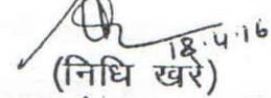 18.4.16
(निधि खरे)